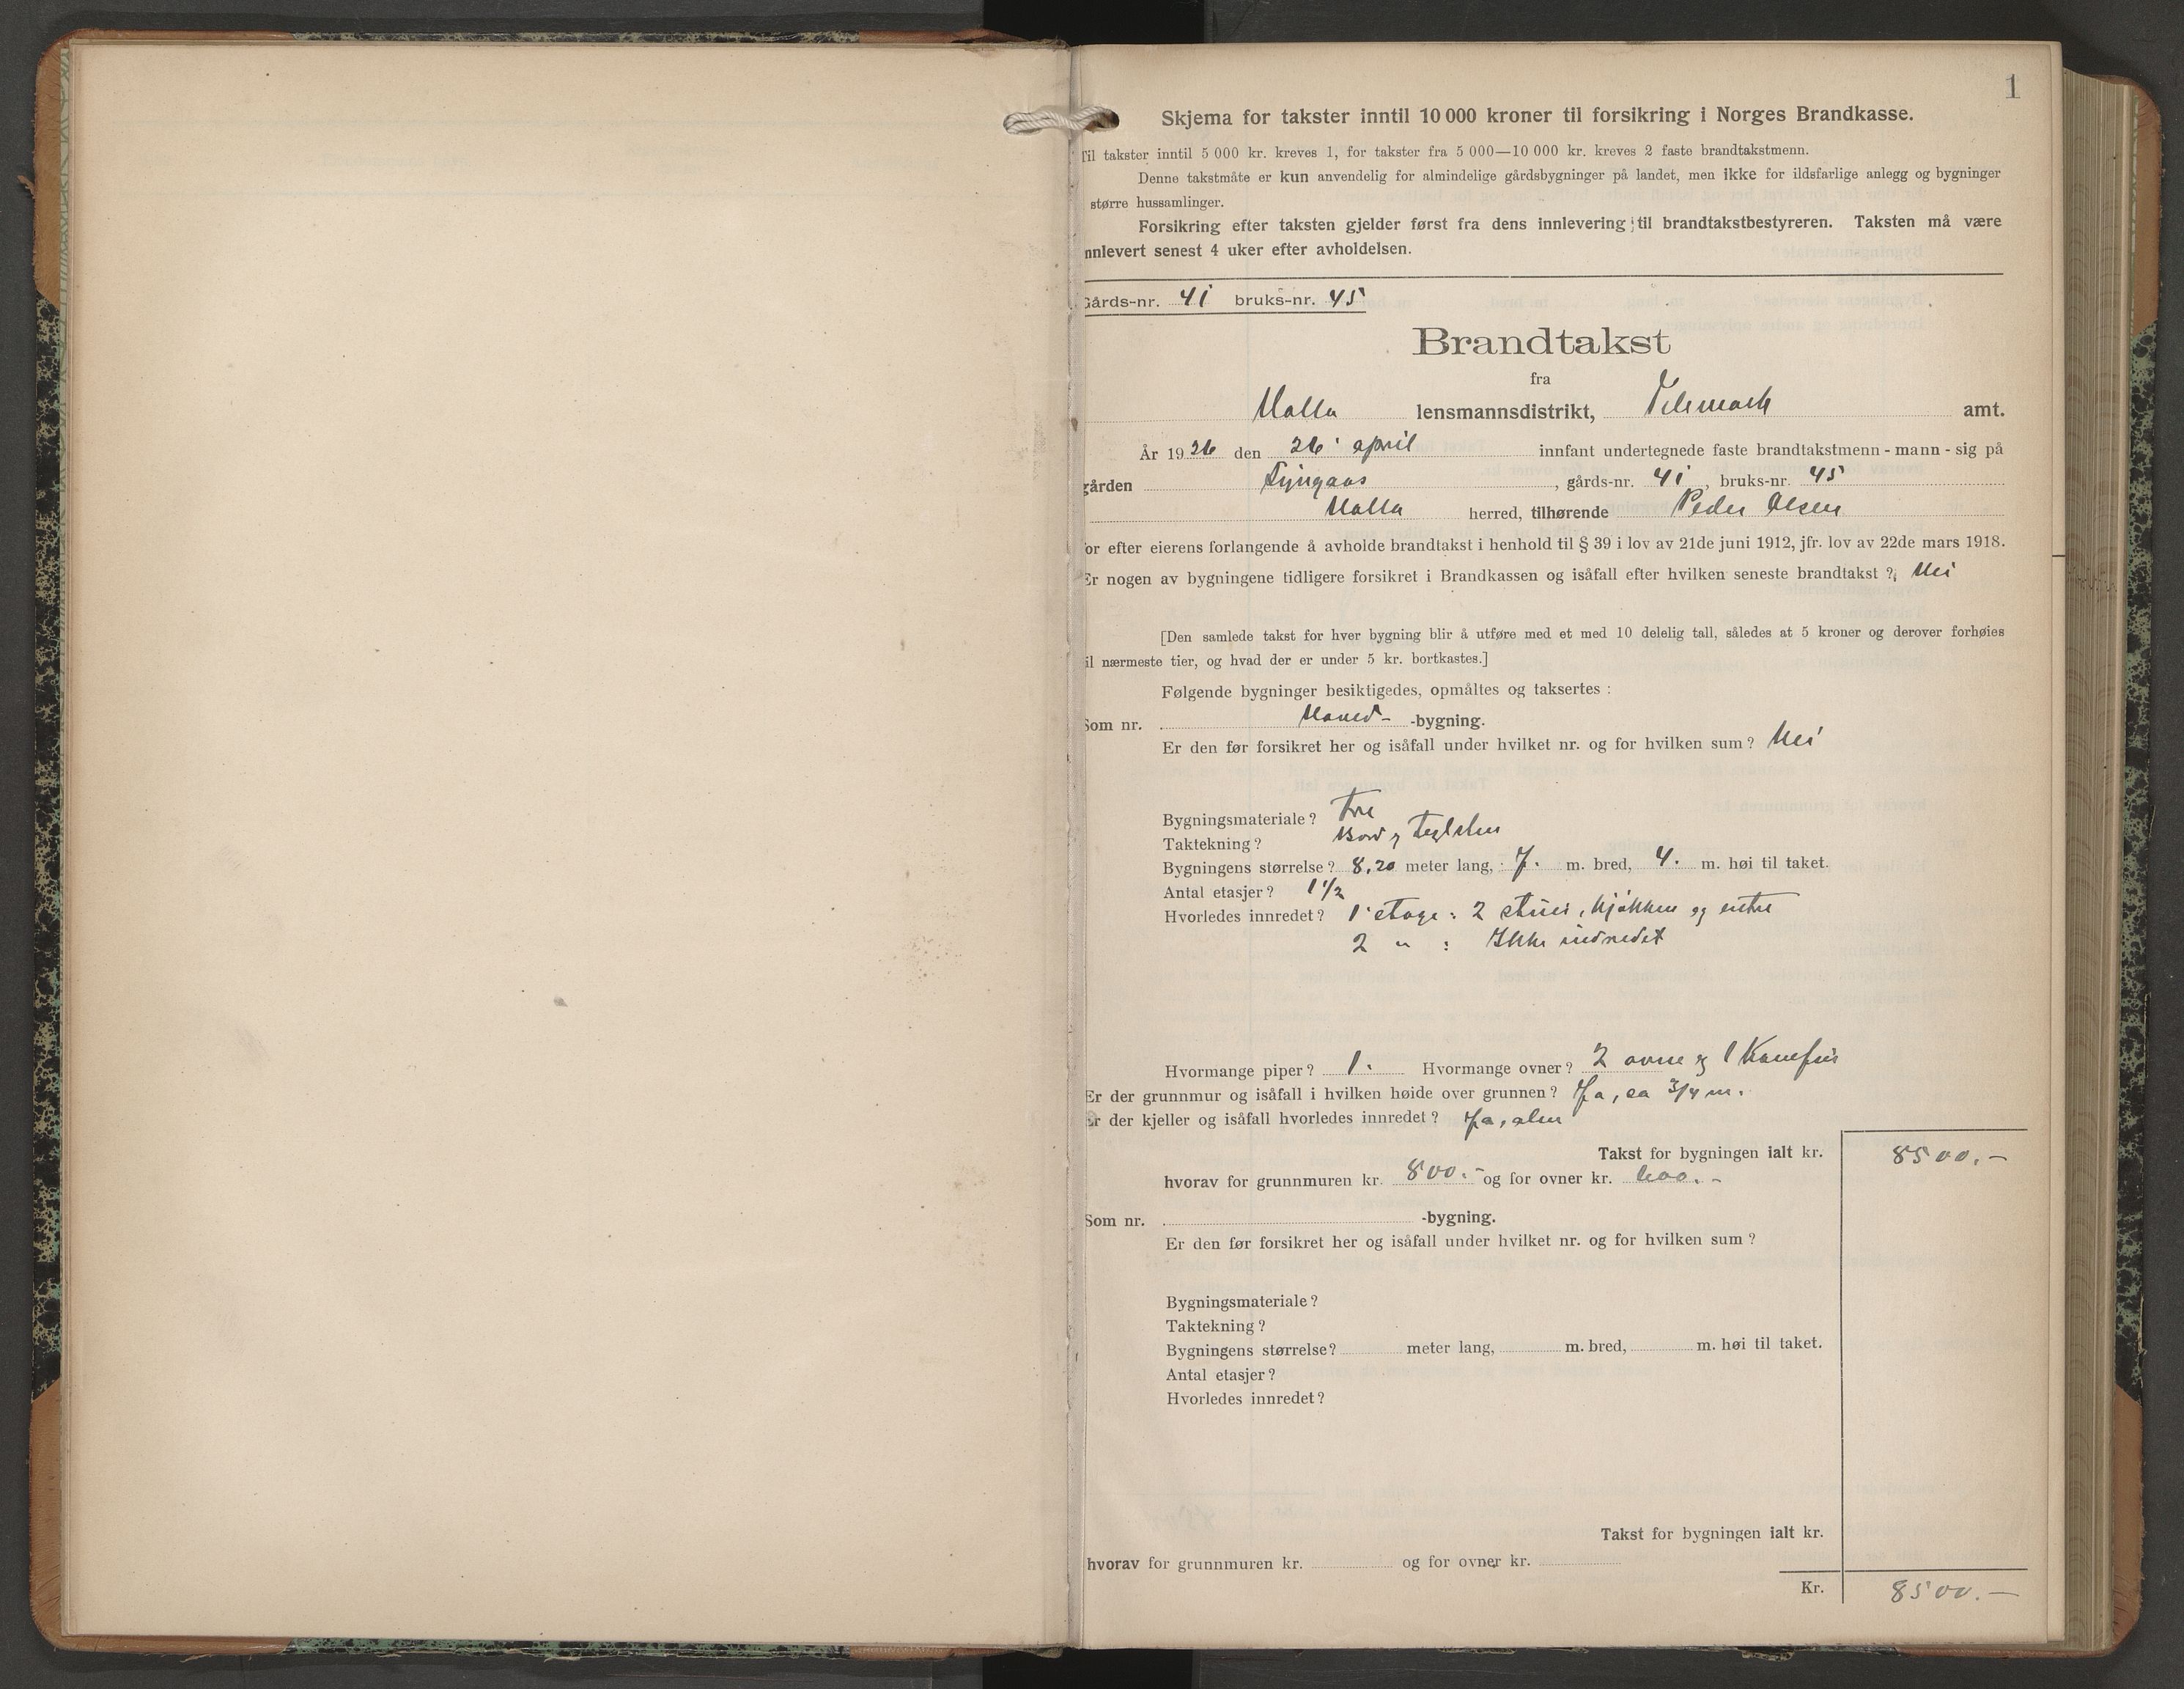 1
Skjema for takster inntil 10 000 kroner til forsikring i Norges Brandkasse.
Til takster inntil 5 000 kr. kreves 1, for takster fra 5 000—10 000 kr. kreves 2 faste brandtakstmenn.
Denne takstmåte er kun anvendelig for almindelige gårdsbygninger på landet, men ikke for ildsfarlige anlegg og bygninger
større hussamlinger.
Forsikring efter taksten gjelder først fra dens innlevering til brandtakstbestyreren. Taksten må være
nnlevert senest 4 uker efter avholdelsen.
Gårds-nr. 41 bruks-nr. 45
Brandtakst
fra
Holla lensmannsdistrikt, Telemark amt.
År 1926 den 26' april innfant undertegnede faste brandtakstmenn - mann - sig på
gården , gårds-nr. 41 , bruks-nr. 45
Holla herred, tilhørende Peder Olsen
for efter eierens forlangende å avholde brandtakst i henhold til § 39 i lov av 21de juni 1912, jfr. lov av 22de mars 1918.
Er nogen av bygningene tidligere forsikret i Brandkassen og isåfall efter hvilken seneste brandtakst ? Nei
[Den samlede takst for hver bygning blir å utføre med et med 10 delelig tall, således at 5 kroner og derover forhøies
il nærmeste tier, og hvad der er under 5 kr. bortkastes.]
Følgende bygninger besiktigedes, opmåltes og taksertes :
Som nr. Hoved- -bygning.
Er den før forsikret her og isåfall under hvilket nr. og for hvilken sum ? Nei
Bygningsmateriale ? Tre
Taktekning ? Bord og Teglsten
Bygningens størrelse ? 8,20 meter lang, 7. m. bred, 4. m. høi til taket.
Antal etasjer ? 1 1/2
Hvorledes innredet ? 1' etage : 2 stuer, kjøkken og entre
2 " : Ikke indredet
Hvormange piper ? 1. Hvormange ovner ? 2 ovne og 1 Komfur
Er der grunnmur og isåfall i hvilken høide over grunnen ? Ja, ca 3/4 m.
Er der kjeller og isåfall hvorledes innredet ? Ja,
Takst for bygningen ialt kr. 8500.-
hvorav for grunnmuren kr. 800.- og for ovner kr. 600.-
Som nr. -bygning.
Er den før forsikret her og isåfall under hvilket nr. og for hvilken sum ?
Bygningsmateriale ?
Taktekning ?
Bygningens størrelse ? meter lang, m. bred, m. høi til taket.
Antal etasjer ?
Hvorledes innredet ?
Takst for bygningen ialt kr.
hvorav for grunnmuren kr. og for ovner kr.
Kr. 8500.-